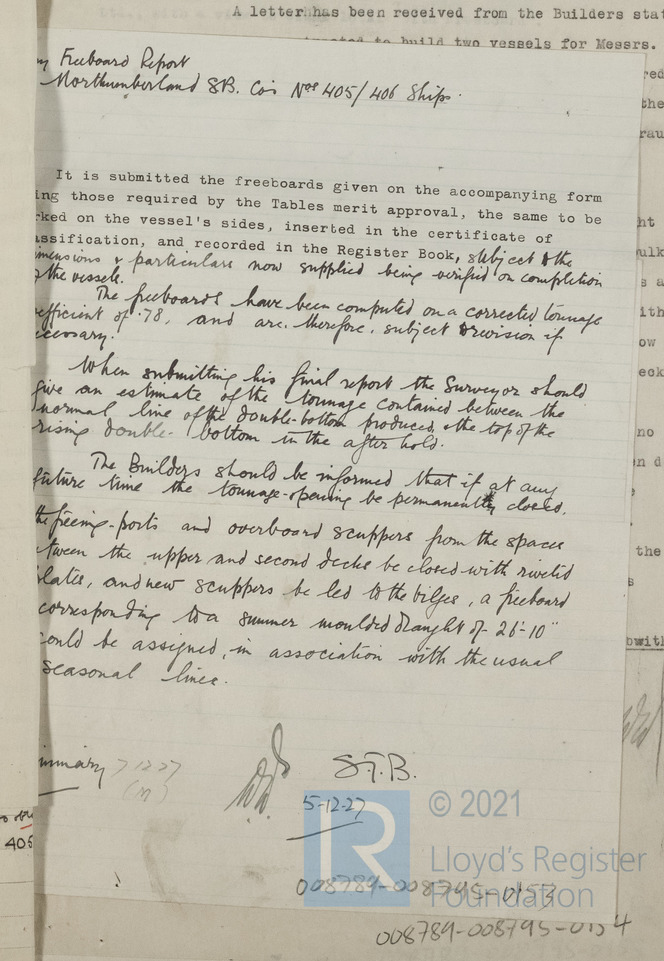 A letter has been received from the Builders stat
to build two vessels for Messrs.
Freeboard Report
Northumberland SB. Co's Nos 405/406 Ships.
It is submitted the freeboards given on the accompanying form
ing those required by the Tables merit approval, the same to be
rked on the vessel's sides, inserted in the certificate of
assification, and recorded in the Register Book, subject to the
imensions & particulars now supplied being verified on completion
of the vessel.
The freeboards have been computed on a corrected tonnage
efficient of .78, and are, therefore, subject to revision if
ecessary.
When submitting his final report the Surveyor should
give an estimate of the tonnage contained between the
normal line of the double-bottom produced, & the top of the
rising double-bottom in the after hold.
The Builders should be informed that if at any
future time the tonnage-opening be permanently closed,
the freeing-ports and overboard scuppers from the spaces
tween the upper and second decks be closed with riveted
plates, and new scuppers be led to the bilges, a freeboard
corresponding to a summer moulded draught of 26'-10"
could be assigned, in association with the usual
seasonal lines.
7 12 27
S.F.B.
5-12-27
405
© 2021
Lloyd's Register
Foundation
008789-008795-0153
008789-008795-0154